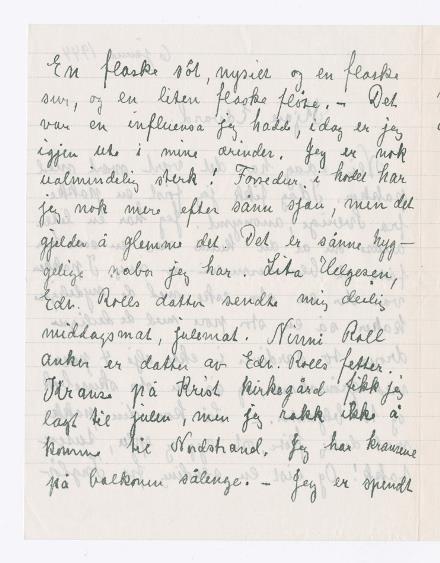 En flaske söt, nysilt og en flaske
sur, og en liten flaske flöte. – Det
var en influensa jeg hadde, idag er jeg
igjen ute i mine ærinder. Jeg er nok
ualmindelig sterk! Forresten i hodet har
jeg nok mere efter sånn sjau, men det
gjelder å glemme det. Det er sånne hyg-
gelige naboer jeg har. Lita Helgesen,
Edv. Rolls datter sendte mig deilig
middagsmat, julemat. Ninni Roll
Anker er datter av Edv. Rolls fetter.
Kranse på Krist kirkegård fikk jeg
lagt til julen, men jeg rakk ikke å
komme til Nordstrand. Jeg har kransene
på balkonen sålenge. – Jeg er spendt